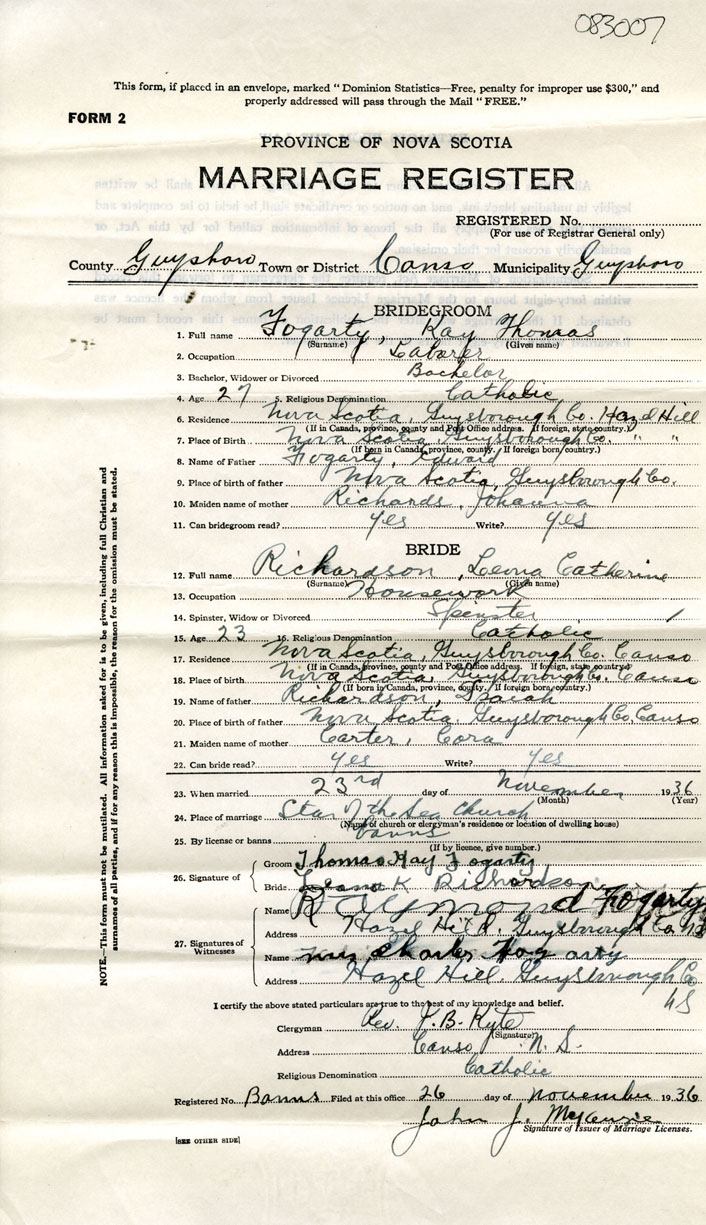 083007
This form, if placed in an envelope, marked "Dominion Statistics—Free, penalty for improper use $300," and
properly addressed will pass through the Mail "FREE."
FORM 2
PROVINCE OF NOVA SCOTIA
MARRIAGE REGISTER
REGISTERED No.
(For use of Registrar General only)
County Guysboro Town or District Canso Municipality Guysboro
BRIDEGROOM
1. Full name Fogarty, Ray Thomas
(Surname) (Given name)
2. Occupation Laborer
3. Bachelor, Widower or Divorced Bachelor
4. Age 27 5. Religious Denomination Catholic
6. Residence Nova Scotia, Guysborough Co. Hazel Hill
(If in Canada, province, county and Post Office address. If foreign, state country.)
7. Place of Birth Nova Scotia, Guysborough Co. " "
(If born in Canada, province, county. If foreign born, country.)
8. Name of Father Fogarty, Edward
9. Place of birth of father Nova Scotia, Guysborough Co.
10. Maiden name of mother Richards, Johanna
11. Can bridegroom read? yes Write? yes
BRIDE
12. Full name Richardson, Leona Catherine
(Surname) (Given name)
13. Occupation Housework
14. Spinster, Widow or Divorced Spenster
15. Age 23 16. Religious Denomination Catholic
17. Residence Nova Scotia, Guysborough Co. Canso
(If in Canada, province, county and Post Office address. If foreign, state country)
18. Place of birth Nova Scotia, Guysborough Co. Canso
(If born in Canada, province, county. If foreign born, country.)
19. Name of father Richardson, Isaiah
20. Place of birth of father Nova Scotia, Guysborough Co. Canso
21. Maiden name of mother Carter, Cora
22. Can bride read? yes Write? yes
23. When married 23rd day of November 1936
(Month) (Year)
24. Place of marriage Star of the Sea Church
(Name of church or clergyman's residence or location of dwelling house)
25. By license or banns Banns
(If by licence, give number.)
26. Signature of Groom Thomas Ray Fogarty
Bride Leona K Richardson
27. Signatures of Witnesses Name Raymond Fogarty
Address Hazel Hill, Guysborough Co. NS
Name Mrs Charles Fogarty
Address Hazel Hill, Guysborough Co
NS
I certify the above stated particulars are true to the best of my knowledge and belief.
Clergyman Rev. J. B. Kyte
(Signature)
Address Canso, N. S.
Religious Denomination Catholic
Registered No. Banns Filed at this office 26 day of November 1936
John J. McKenzie
Signature of Issuer of Marriage Licenses.
[SEE OTHER SIDE]
NOTE.—This form must not be mutilated. All information asked for is to be given, including full Christian and
surnames of all parties, and if for any reason this is impossible, the reason for the omission must be stated.